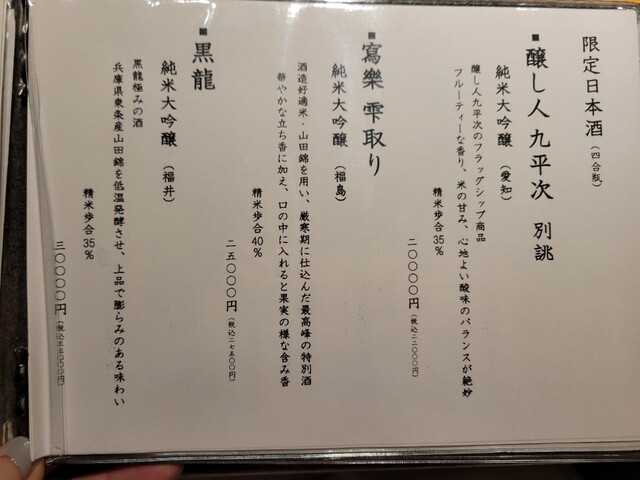 限定日本酒（四合瓶）
■醸し人九平次 別誂
純米大吟醸（愛知）
醸し人九平次のフラッグシップ商品
フルーティーな香り、米の甘み、心地よい酸味のバランスが絶妙
精米歩合35％
二〇〇〇〇円（税込二二〇〇〇円）
■寫樂 雫取り
純米大吟醸（福島）
酒造好適米・山田錦を用い、厳寒期に仕込んだ最高峰の特別酒
華やかな立ち香に加え、口の中に入れると果実の様な含み香
精米歩合40％
二五〇〇〇円（税込二七五〇〇円）
■黒龍
純米大吟醸（福井）
黒龍極みの酒
兵庫県東条産山田錦を低温発酵させ、上品で膨らみのある味わい
精米歩合35％
三〇〇〇〇円（税込三三〇〇〇円）